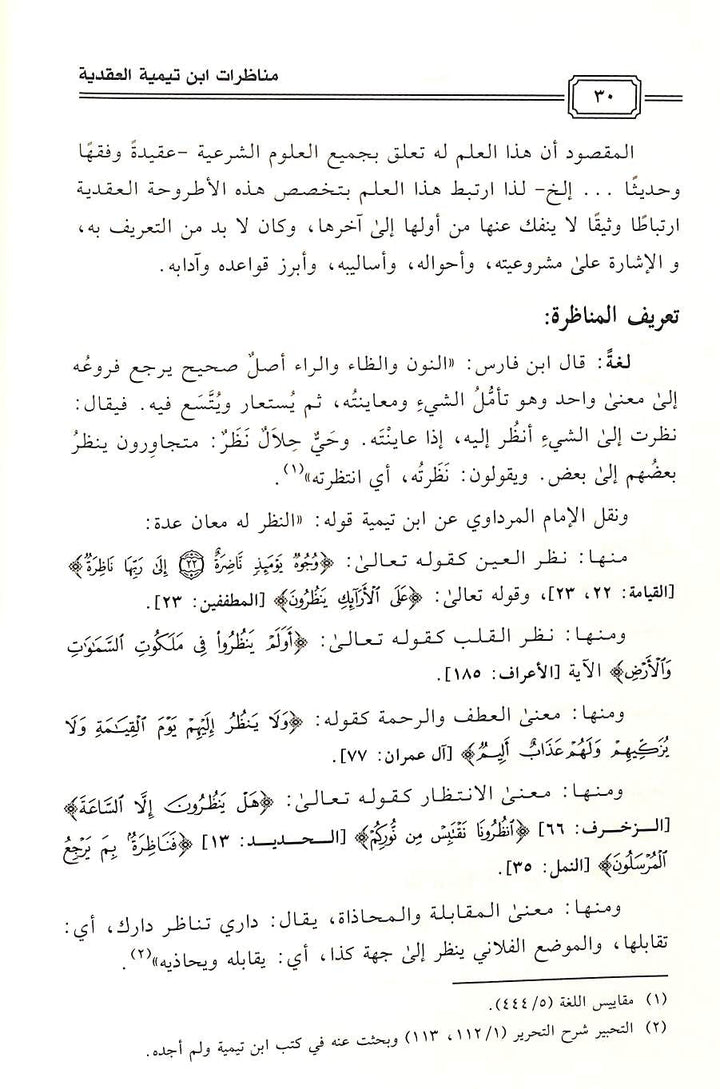 مناظرات ابن تيمية العقدية
٣٠
المقصود أن هذا العلم له تعلق بجميع العلوم الشرعية -عقيدةً وفقهًا
وحديثًا ... إلخ- لذا ارتبط هذا العلم بتخصص هذه الأطروحة العقدية
ارتباطًا وثيقًا لا ينفك عنها من أولها إلىٰ آخرها، وكان لا بد من التعريف به،
و الإشارة علىٰ مشروعيته، وأحواله، وأساليبه، وأبرز قواعده وآدابه.
تعريف المناظرة:
لغةً: قال ابن فارس: «النون والظاء والراء أصلٌ صحيح يرجع فروعُه
إلىٰ معنىٰ واحد وهو تأمُّلُ الشيءِ ومعاينتُه، ثم يُستعار ويُتَّسَع فيه. فيقال:
نظرت إلىٰ الشيءِ أنظُر إليه، إذا عاينْتَه. وحَيٌّ حِلاَلٌ نَظَرٌ: متجاوِرون ينظرُ
بعضُهم إلىٰ بعض. ويقولون: نَظَرتُه، أي انتظرته»(١).
ونقل الإمام المرداوي عن ابن تيمية قوله: «النظر له معان عدة:
منها: نظر العين كقوله تعالىٰ: ﴿وُجُوهٌ يَوْمَئِذٍ نَاضِرَةٌ ٢٢ إِلَىٰ رَبِّهَا نَاظِرَةٌ﴾
[القيامة: ٢٢، ٢٣]، وقوله تعالىٰ: ﴿عَلَى ٱلْأَرَآئِكِ يَنظُرُونَ﴾ [المطففين: ٢٣].
ومنها: نظر القلب كقوله تعالىٰ: ﴿أَوَلَمْ يَنظُرُوا۟ فِى مَلَكُوتِ ٱلسَّمَٰوَٰتِ
وَٱلْأَرْضِ﴾ الآية [الأعراف: ١٨٥].
ومنها: معنىٰ العطف والرحمة كقوله: ﴿وَلَا يَنظُرُ إِلَيْهِمْ يَوْمَ ٱلْقِيَٰمَةِ وَلَا
يُزَكِّيهِمْ وَلَهُمْ عَذَابٌ أَلِيمٌ﴾ [آل عمران: ٧٧].
ومنها: معنىٰ الانتظار كقوله تعالىٰ: ﴿هَلْ يَنظُرُونَ إِلَّا ٱلسَّاعَةَ﴾
[الزخرف: ٦٦] ﴿ٱنظُرُونَا نَقْتَبِسْ مِن نُّورِكُمْ﴾ [الحديد: ١٣] ﴿فَنَاظِرَةٌۢ بِمَ يَرْجِعُ
ٱلْمُرْسَلُونَ﴾ [النمل: ٣٥].
ومنها: معنىٰ المقابلة والمحاذاة، يقال: داري تناظر دارك، أي:
تقابلها، والموضع الفلاني ينظر إلىٰ جهة كذا، أي: يقابله ويحاذيه»(٢).
(١) مقاييس اللغة (٥/٤٤٤).
(٢) التحبير شرح التحرير (١/١١٢، ١١٣) وبحثت عنه في كتب ابن تيمية ولم أجده.